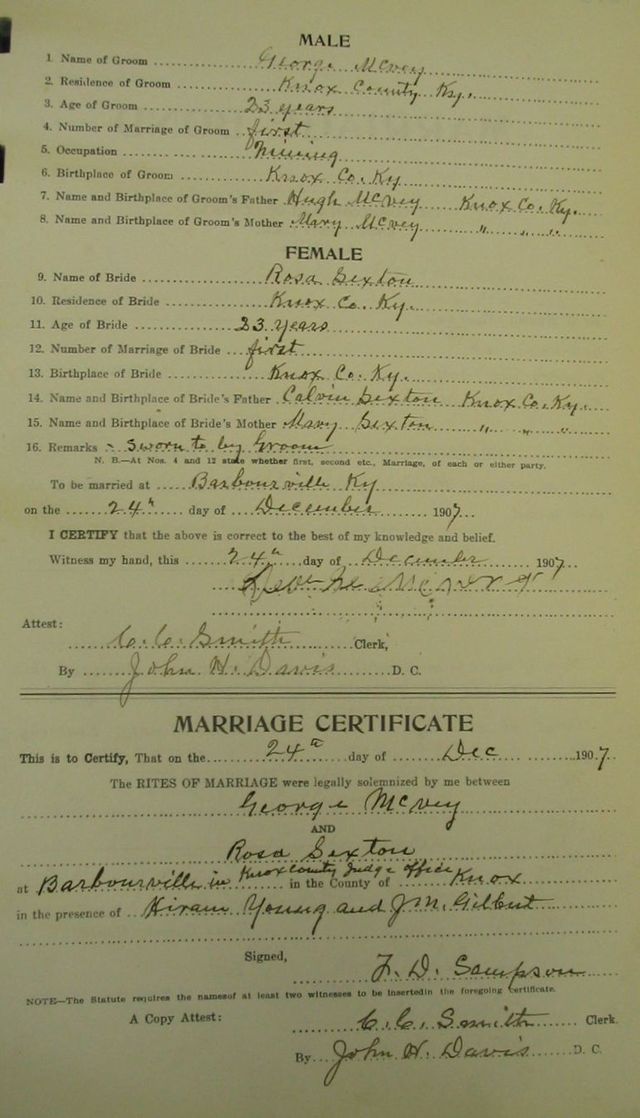 MALE
1. Name of Groom George McVey
2. Residence of Groom Knox County Ky.
3. Age of Groom 23 years
4. Number of Marriage of Groom first
5. Occupation Mining
6. Birthplace of Groom Knox Co. Ky
7. Name and Birthplace of Groom's Father Hugh McVey Knox Co. Ky.
8. Name and Birthplace of Groom's Mother Mary McVey " " "
FEMALE
9. Name of Bride Rosa Sexton
10. Residence of Bride Knox Co. Ky.
11. Age of Bride 23 years
12. Number of Marriage of Bride first
13. Birthplace of Bride Knox Co. Ky.
14. Name and Birthplace of Bride's Father Calvin Sexton Knox Co. Ky.
15. Name and Birthplace of Bride's Mother Mary Sexton " " "
16. Remarks - Sworn to by Groom
N. B.—At Nos. 4 and 12 state whether first, second etc., Marriage, of each or either party.
To be married at Barbourville Ky
on the 24th day of December 1907
I CERTIFY that the above is correct to the best of my knowledge and belief.
Witness my hand, this 24th day of December 1907
Attest:
C. C. Smith Clerk,
By John H. Davis D. C.
MARRIAGE CERTIFICATE
This is to Certify, That on the 24th day of Dec 1907.
The RITES OF MARRIAGE were legally solemnized by me between
George McVey
AND
Rosa Sexton
at Barbourville in Knox County Judge office in the County of Knox
in the presence of Hiram Young and J. M. Gilbert
Signed,
F. D. Sampson
NOTE—The Statute requires the namesof at least two witnesses to be insertedin the foregoing certificate.
A Copy Attest: C. C. Smith Clerk.
By John H. Davis D. C.